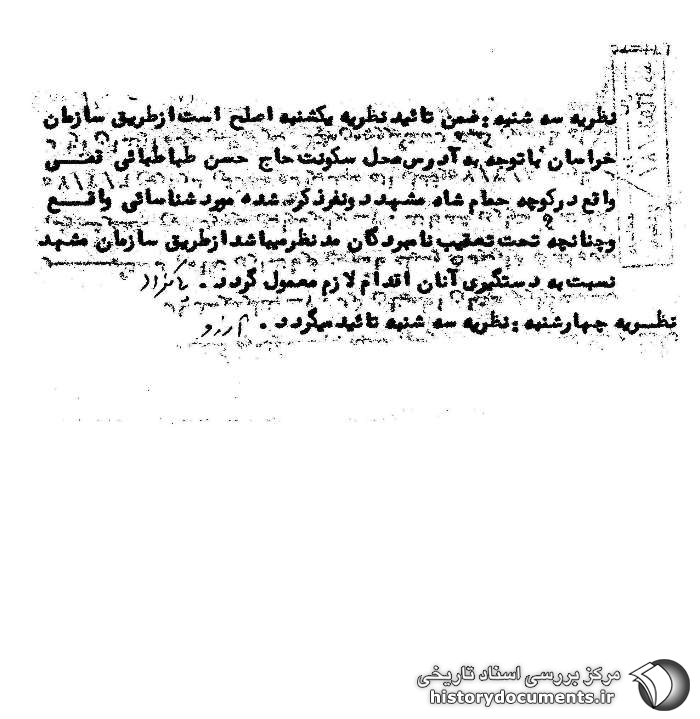 نظریه سه شنبه : ضمن تائید نظریه یکشنبه اصلح است از طریق سازمان
خراسان با توجه به آدرس محل سکونت حاج حسن طباطبائی قمی
واقع در کوچه حمام شاه مشهد دو نفر ذکر شده مورد شناسائی واقع
و چنانچه تحت تعقیب نامبردگان مد نظر میباشد از طریق سازمان مشهد
نسبت به دستگیری آنان اقدام لازم معمول گردد .
نظریه چهارشنبه : نظریه سه شنبه تائید میگردد .
مرکز بررسی اسناد تاریخی
historydocuments.ir